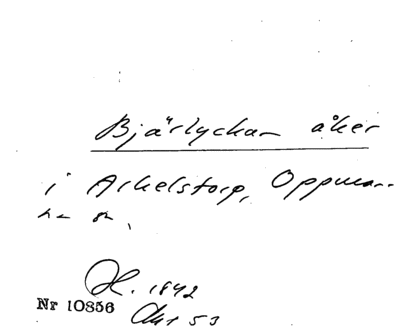 Bjärlyckan åker
i Arkelstorp, Oppman-
na sn.
H. 1842
Nr 10856
Akt 53